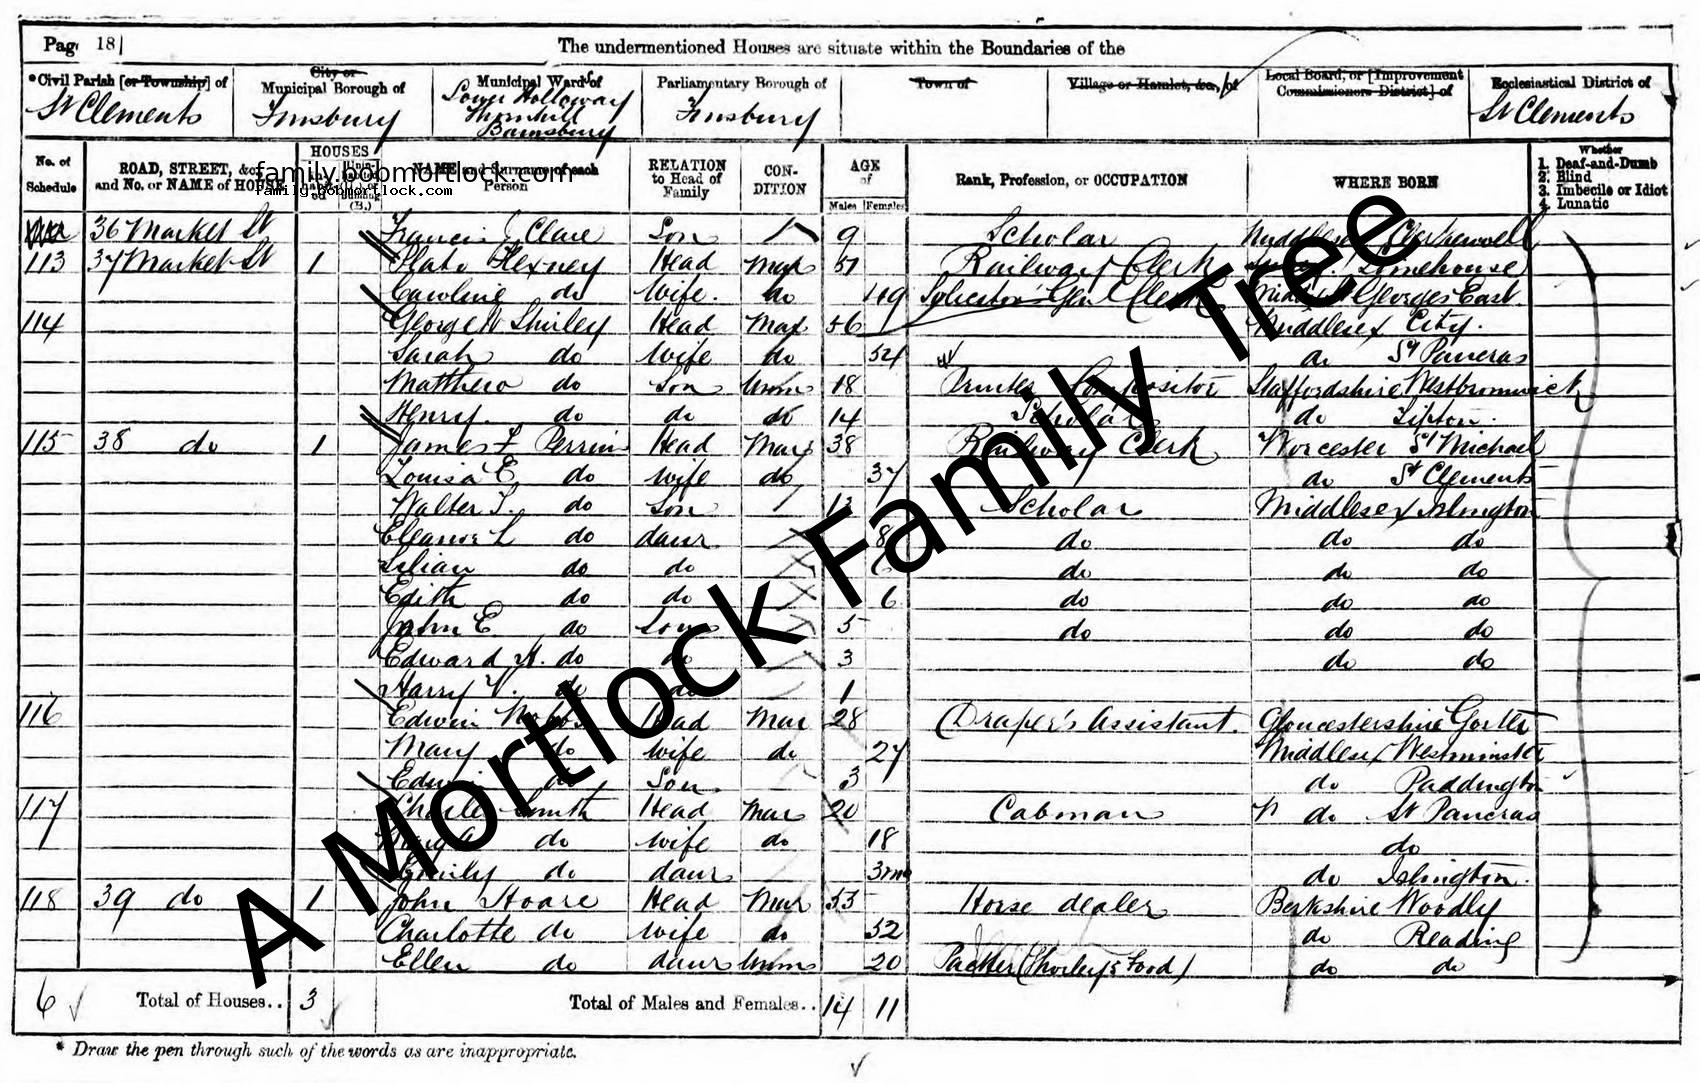 Page 18]
The undermentioned Houses are situate within the Boundaries of the
*Civil Parish [or Township] of
City or Municipal Borough of
Municipal Ward of
Parliamentary Borough of
Town of
Village or Hamlet, &c., of
Local Board, or [Improvement Commissioners District] of
Ecclesiastical District of
St Clements
Finsbury
Lower Holloway
Thornhill
Barnsbury
Finsbury
St Clements
No. of Schedule
ROAD, STREET, &c., and No. or NAME of HOUSE
HOUSES
(B.)
NAME and Surname of each Person
RELATION to Head of Family
CONDITION
AGE of
Males Females
Rank, Profession, or OCCUPATION
WHERE BORN
Whether
1. Deaf-and-Dumb
2. Blind
3. Imbecile or Idiot
4. Lunatic
family.bobmortlock.com
family.bobmortlock.com
36 Market St Francis J Clare Son 9 Scholar Middlesex Clerkenwell
113 37 Market St 1 Flexney Head Mar 51 Railway Clerk Limehouse
Caroline do Wife do 49 Georges East
114 George W Shirley Head Mar 56 Solicitors Genl Clerk Middlesex City
Sarah do Wife do 54 do St Pancras
Matthew do Son Unm 18 Printer Compositor Staffordshire Westbromwick
Henry do do do 14 Scholar do Tipton
115 38 do 1 James F Perrin Head Mar 38 Railway Clerk Worcester St Michael
Louisa E do Wife do 37 do St Clements
Walter do Son 13 Scholar Middlesex Islington
Eleanor L do daur 8 do do do
Lilian do do 6 do do do
Edith do do 6 do do do
John E do Son 5 do do do
Edward H. do do 3 do do
Harry V. do do 1
116 Edwin Head Mar 28 Draper's Assistant. Gloucestershire
Mary do Wife do 27 Middlesex Westminster
Edwin do Son 3 do Paddington
117 Charles Smith Head Mar 20 Cabman do St Pancras
do Wife do 18 do
Emily do daur 3m do Islington
118 39 do 1 John Hoare Head Mar 53 Horse dealer Berkshire Woodly
Charlotte do Wife do 52 do Reading
Ellen do daur Unm 20 Packer (Thorley's Food) do do
6 Total of Houses.. 3 Total of Males and Females.. 14 11
* Draw the pen through such of the words as are inappropriate.
A Mortlock Family Tree